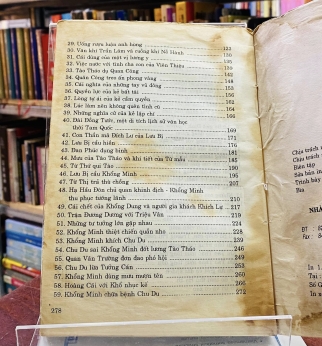 29. Uống rượu luận anh hùng
123
30. Văn khi Trần Lâm và cuồng khí Nễ Hành
130
31. Cái dũng của một vị lương y
135
32. Việc nước với tình cha con của Viên Thiệu
139
33. Tào Tháo dụ Quan Công
142
34. Quân Công treo ấn phong vàng
148
35. Cái nghĩa của những tay võ dũng
153
36. Quyền lực của kẻ bất tài
156
37. Lòng tự ái của kẻ cầm quyền
161
38. Lúc lâm nên không quên tình cũ
164
39. Những nghĩa cử của kẻ lập chí
166
40. Đài Đồng Tước, một di tích lịch sử văn học
thời Tam Quốc
169
41. Con Thần mã Đích Lư của Lưu Bị
171
42. Lưu Bị cầu hiền
176
43. Đan Phúc dụng binh
181
44. Mưu của Tào Tháo và khí tiết của Từ mẫu
185
45. Từ Thứ qui Tào
190
46. Lưu Bị cầu Khổng Minh
195
47. Từ Thị trả thù chồng
207
48. Hạ Hầu Đôn chỉ quan khinh địch - Khổng Minh
thu phục tướng lãnh
210
49. Cái chết của Khổng Dung và người gia khách Khích Lự
217
50. Trận Đương Dương với Triệu Vân
219
51. Những tư tưởng lớn gặp nhau
224
52. Khổng Minh thiệt chiến quần nho
228
53. Khổng Minh khích Chu Du
239
54. Chu Du sai Khổng Minh đốt lương Tào Tháo
246
55. Quan Vân Trường đơn đao phó hội
249
56. Chu Du lừa Tưởng Cán
253
57. Khổng Minh dùng mưu mượn tên
260
58. Hoàng Cái với Khổ nhục kế
266
59. Khổng Minh chữa bệnh Chu Du
272
278
Chịu trách
Chịu trách
Biên tập
Sửa bản in
Trình bày
Bìa
NHÀ
In 1.
Số G
In x